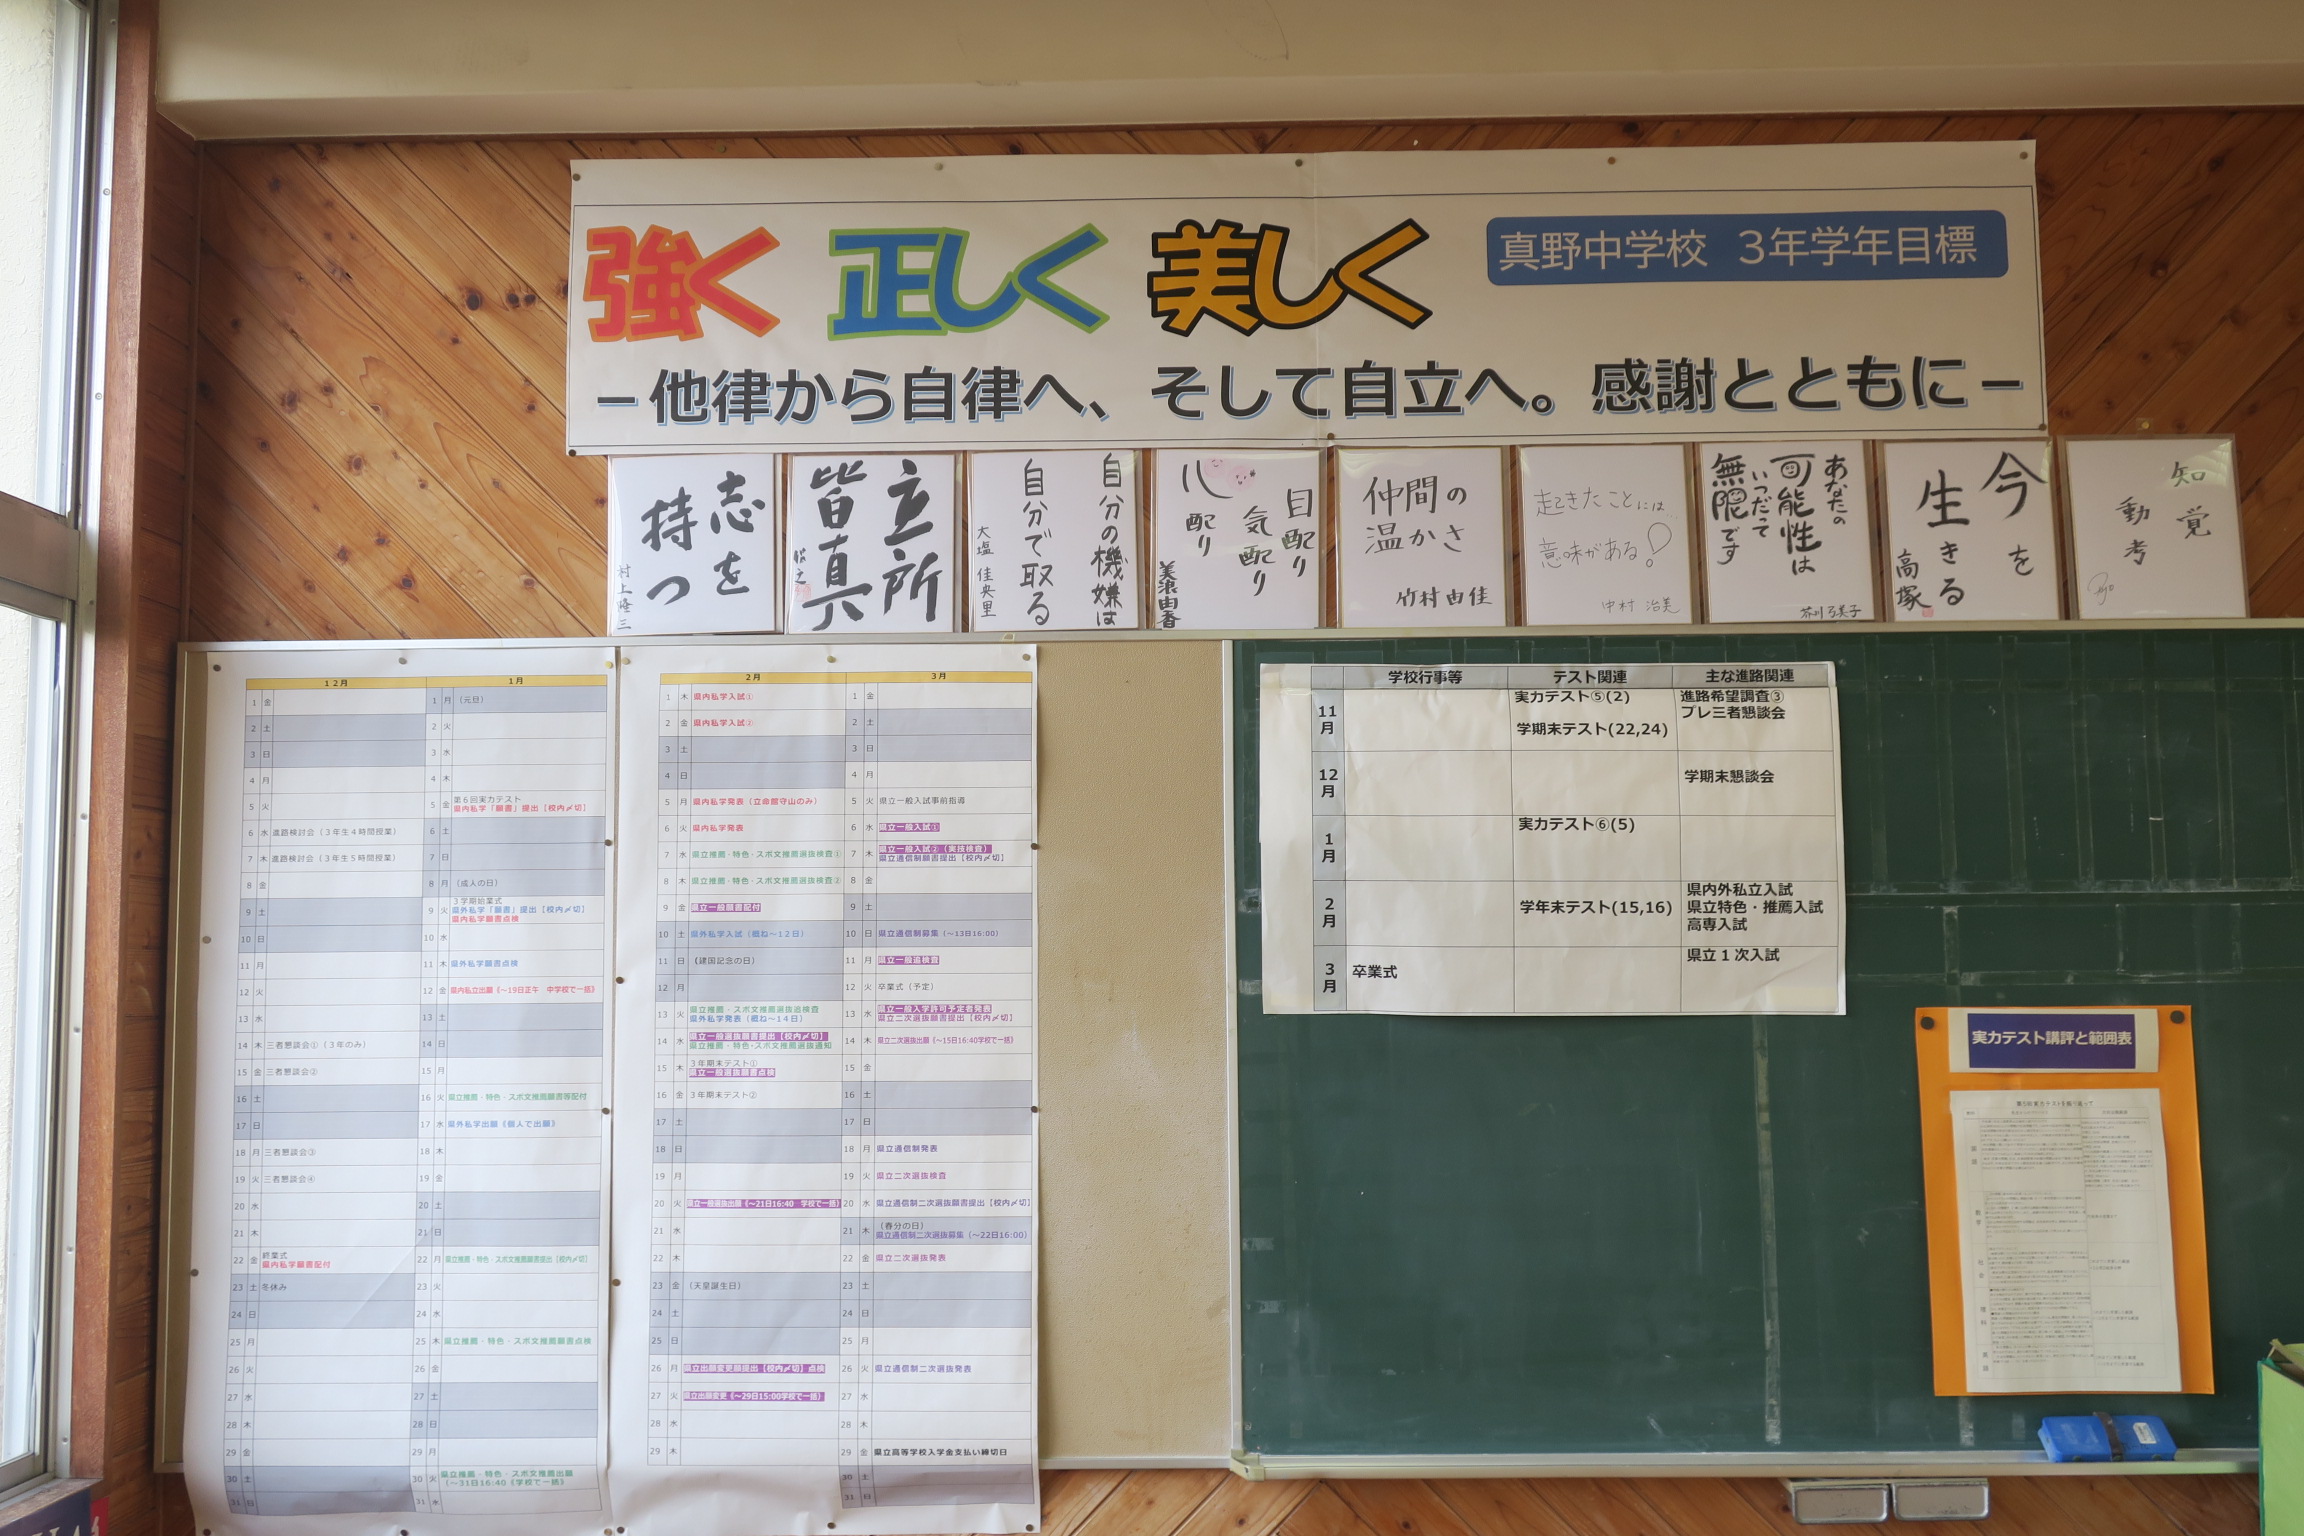 強く 正しく 美しく
真野中学校 3年学年目標
－他律から自律へ、そして自立へ。感謝とともに－
志を
持つ
村上隆三
立所
皆真
自分の機嫌は
自分で取る
大塩 佳央里
目配り
気配り
心配り
美濃由香
仲間の
温かさ
竹村由佳
起きたことには…
意味がある!
中村 治美
あなたの
可能性は
いつだって
無限です
芥川弓美子
今を
生きる
高塚
知覚
動考
12月
1 金
2 土
3 日
4 月
5 火
6 水 進路検討会（3年生4時間授業）
7 木 進路検討会（3年生5時間授業）
8 金
9 土
10 日
11 月
12 火
13 水
14 木 三者懇談会①（3年のみ）
15 金 三者懇談会②
16 土
17 日
18 月 三者懇談会③
19 火 三者懇談会④
20 水
21 木
22 金 終業式
県内私学願書配付
23 土 冬休み
24 日
25 月
26 火
27 水
28 木
29 金
30 土
31 日
1月
1 月 （元旦）
2 火
3 水
4 木
5 金 第6回実力テスト
県内私学「願書」提出【校内〆切】
6 土
7 日
8 月 （成人の日）
9 火 3学期始業式
県外私学「願書」提出【校内〆切】
県内私学願書点検
10 水
11 木 県外私学願書点検
12 金 県内私立出願《～19日正午 中学校で一括》
13 土
14 日
15 月
16 火 県立推薦・特色・スポ文推薦願書等配付
17 水 県外私学出願《個人で出願》
18 木
19 金
20 土
21 日
22 月 県立推薦・特色・スポ文推薦願書提出【校内〆切】
23 火
24 水
25 木 県立推薦・特色・スポ文推薦願書点検
26 金
27 土
28 日
29 月
30 火 県立推薦・特色・スポ文推薦出願
（～31日16:40《学校で一括》
31 水
2月
1 木 県内私学入試①
2 金 県内私学入試②
3 土
4 日
5 月 県内私学発表（立命館守山のみ）
6 火 県内私学発表
7 水 県立推薦・特色・スポ文推薦選抜検査①
8 木 県立推薦・特色・スポ文推薦選抜検査②
9 金 県立一般願書配付
10 土 県外私学入試（概ね～12日）
11 日 （建国記念の日）
12 月
13 火 県立推薦・スポ文推薦選抜追検査
県外私学発表（概ね～14日）
14 水 県立一般選抜願書提出【校内〆切】
県立推薦・特色・スポ文推薦選抜通知
15 木 3年期末テスト①
県立一般選抜願書点検
16 金 3年期末テスト②
17 土
18 日
19 月
20 火 県立一般選抜出願《～21日16:40 学校で一括》
21 水
22 木
23 金 （天皇誕生日）
24 土
25 日
26 月 県立出願変更願提出【校内〆切】点検
27 火 県立出願変更《～29日15:00学校で一括》
28 水
29 木
3月
1 金
2 土
3 日
4 月
5 火 県立一般入試事前指導
6 水 県立一般入試①
7 木 県立一般入試②（実技検査）
県立通信制願書提出【校内〆切】
8 金
9 土
10 日 県立通信制募集（～13日16:00）
11 月 県立一般追検査
12 火 卒業式（予定）
13 水 県立一般入学許可予定者発表
県立二次選抜願書提出【校内〆切】
14 木 県立二次選抜出願《～15日16:40学校で一括》
15 金
16 土
17 日
18 月 県立通信制発表
19 火 県立二次選抜検査
20 水 県立通信制二次選抜願書提出【校内〆切】
21 木 （春分の日）
県立通信制二次選抜募集（～22日16:00）
22 金 県立二次選抜発表
23 土
24 日
25 月
26 火 県立通信制二次選抜発表
27 水
28 木
29 金 県立高等学校入学金支払い締切日
30 土
31 日
学校行事等 テスト関連 主な進路関連
11月 実力テスト⑤(2) 進路希望調査③
プレ三者懇談会
学期末テスト(22,24)
12月 学期末懇談会
1月 実力テスト⑥(5)
2月 学年末テスト(15,16) 県内外私立入試
県立特色・推薦入試
高専入試
3月 卒業式 県立1次入試
実力テスト講評と範囲表
第5回実力テストを振り返って